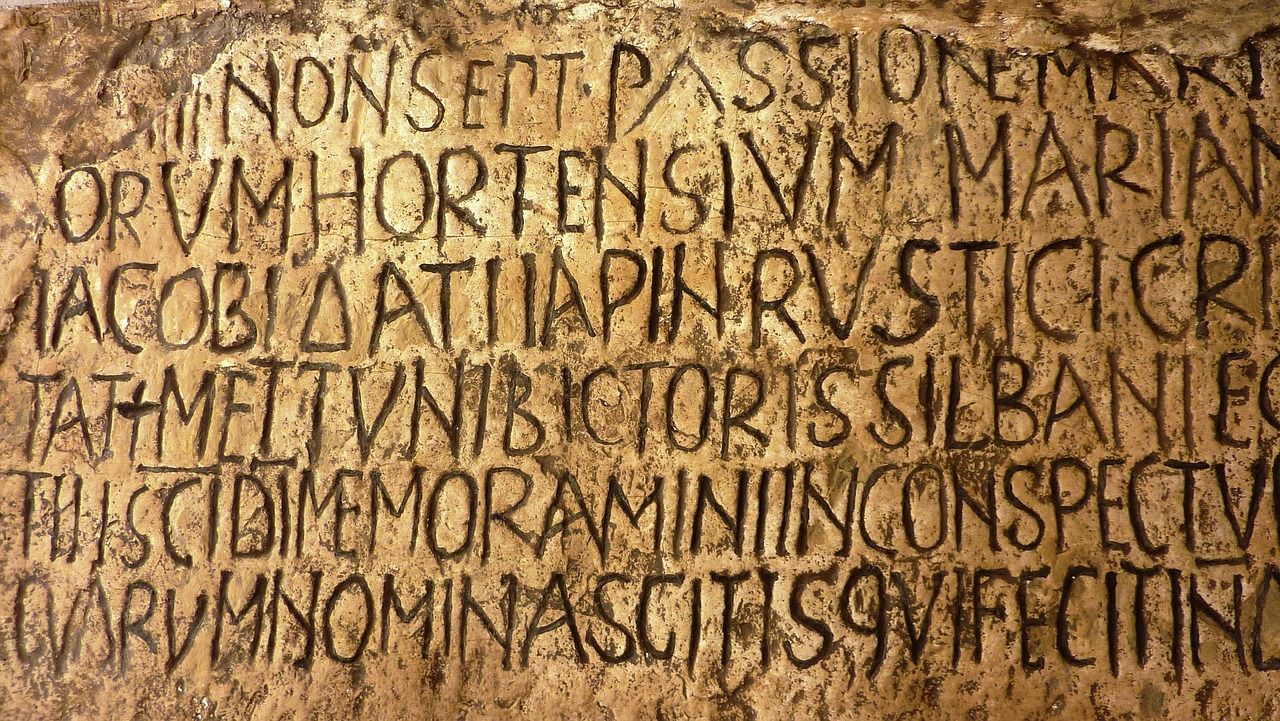 IIII NON SEPT PASSIONE
ORVM HORTENSIVM MARIAN
IACOBI DATI IAPIN RVSTICI CRI
TAT+ METTVNI BICTORIS SILBANI EG
TII SCI DI MEMORAMINI IN CONSPECTV
NOMINA SCITIS QVI FECIT IND